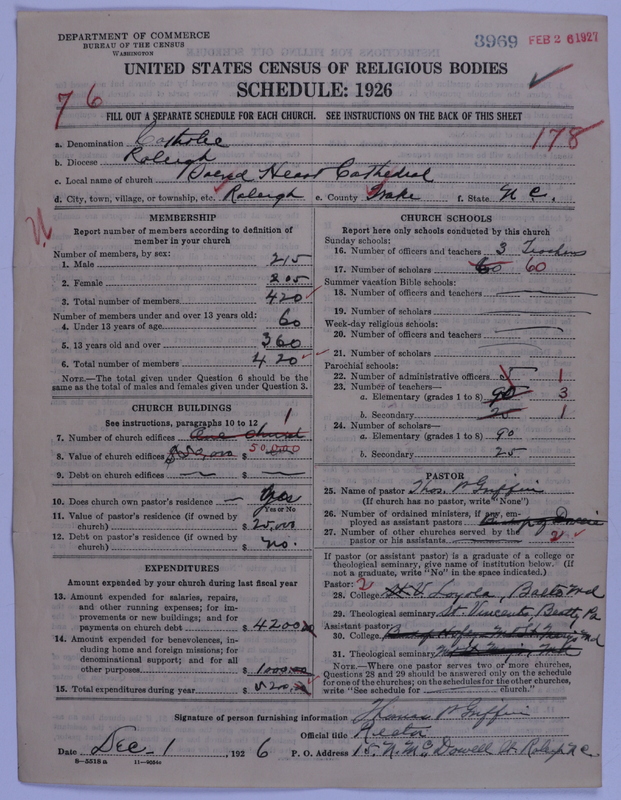 DEPARTMENT OF COMMERCE
BUREAU OF THE CENSUS
WASHINGTON
3969 FEB 26 1927
UNITED STATES CENSUS OF RELIGIOUS BODIES
SCHEDULE: 1926
76
FILL OUT A SEPARATE SCHEDULE FOR EACH CHURCH. SEE INSTRUCTIONS ON THE BACK OF THIS SHEET
178
a. Denomination Catholic
b. Diocese Raleigh
c. Local name of church Sacred Heart Cathedral
d. City, town, village, or township, etc. Raleigh e. County Wake f. State N C.
MEMBERSHIP
Report number of members according to definition of
member in your church
Number of members, by sex:
1. Male 215
2. Female 205
3. Total number of members 420
Number of members under and over 13 years old:
4. Under 13 years of age 60
5. 13 years old and over 360
6. Total number of members 420
NOTE.—The total given under Question 6 should be the
same as the total of males and females given under Question 3.
CHURCH BUILDINGS
See instructions, paragraphs 10 to 12
7. Number of church edifices One church 1
8. Value of church edifices $ 50,000
9. Debt on church edifices — $ —
10. Does church own pastor's residence — Yes
Yes or No
11. Value of pastor's residence (if owned by
church) $ 25,000
12. Debt on pastor's residence (if owned by
church) $ no.
EXPENDITURES
Amount expended by your church during last fiscal year
13. Amount expended for salaries, repairs,
and other running expenses; for im-
provements or new buildings; and for
payments on church debt $ 4200
14. Amount expended for benevolences, in-
cluding home and foreign missions; for
denominational support; and for all
other purposes $ 1000
15. Total expenditures during year $ 5200
CHURCH SCHOOLS
Report here only schools conducted by this church
Sunday schools:
16. Number of officers and teachers 3 Teachers
17. Number of scholars 60 60
Summer vacation Bible schools:
18. Number of officers and teachers
19. Number of scholars
Week-day religious schools:
20. Number of officers and teachers
21. Number of scholars
Parochial schools:
22. Number of administrative officers 1
23. Number of teachers—
a. Elementary (grades 1 to 8) 90 3
b. Secondary 25 1
24. Number of scholars—
a. Elementary (grades 1 to 8) 90
b. Secondary 25
PASTOR
25. Name of pastor Thos. P Griffin
(If church has no pastor, write "None")
26. Number of ordained ministers, if any, em-
ployed as assistant pastors
27. Number of other churches served by the
pastor or his assistants 2
If pastor (or assistant pastor) is a graduate of a college or
theological seminary, give name of institution below. (If
not a graduate, write "No" in the space indicated.)
Pastor: 2
28. College Loyola, Balto Md
29. Theological seminary St. Vincents, Beatty, Pa
Assistant pastor:
30. College
31. Theological seminary
NOTE.—Where one pastor serves two or more churches,
Questions 28 and 29 should be answered only on the schedule
for one of the churches; on the schedules for the other churches,
write "See schedule for church."
Signature of person furnishing information Thomas P Griffin
Official title Rector
Date Dec. 1, 1926 P. O. Address 15 N. McDowell St. Raleigh N C.
8—5518a 11—9064